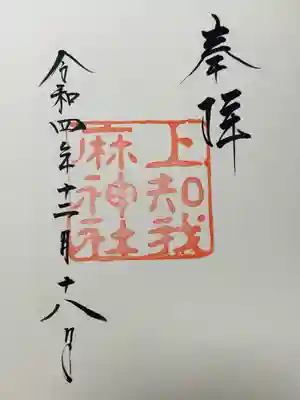 奉拝
上知我
麻神社
令和四年十二月十八日